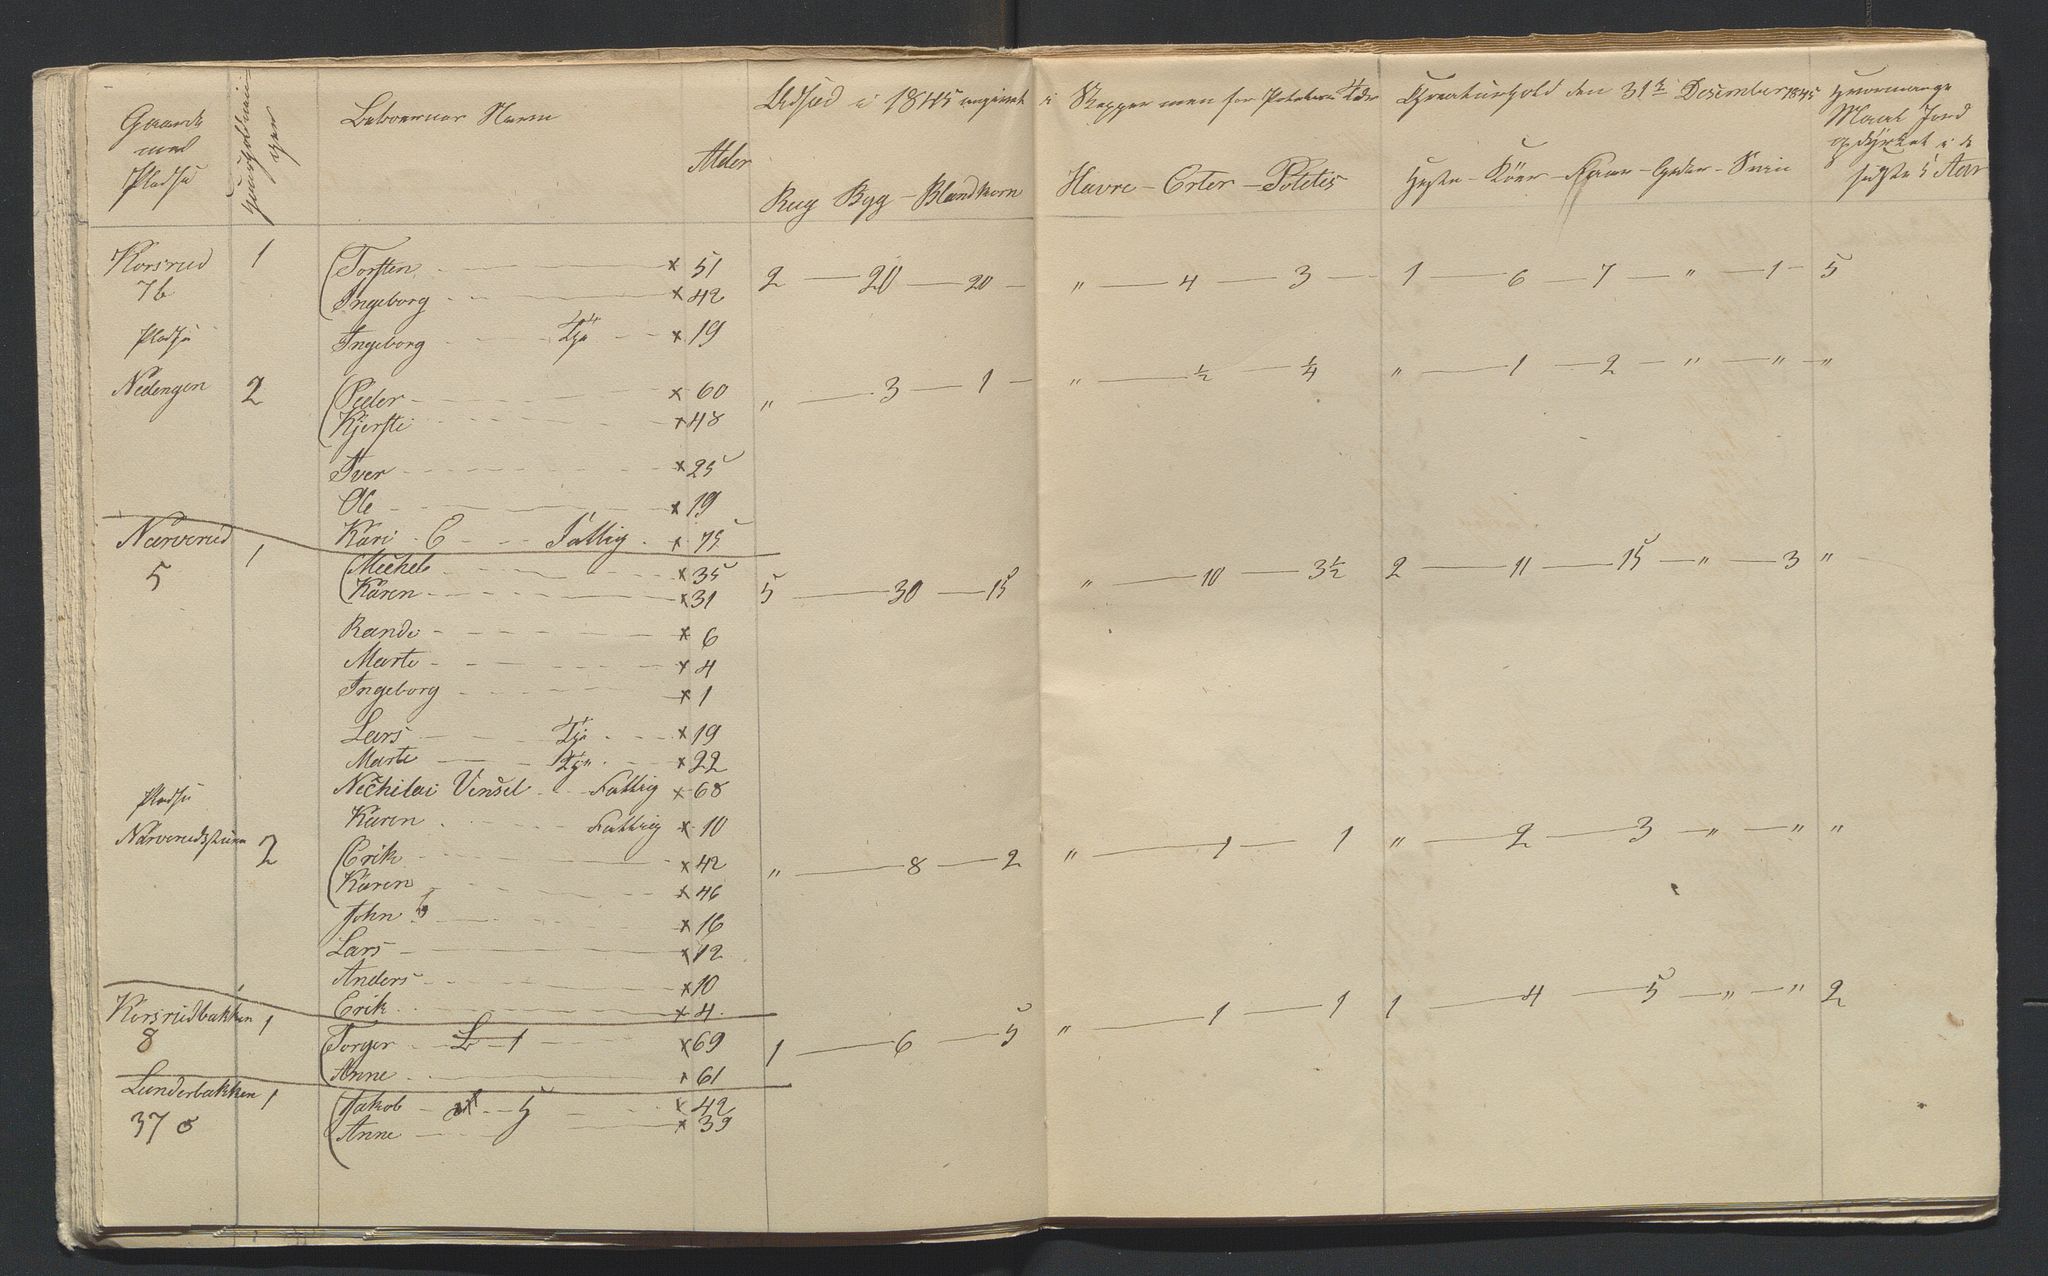 Gaarde med Pladse Huusholdninger Beboernes Navn Alder Udsæd i 1845 angivet i Skepper men for Poteterne Tdr Creaturhold den 31te Desember 1845 Hvormange
Maal Jord
opdyrket i de
sidste 5 Aar
Rug Byg - Blandkorn Havre - Erter - Potetes Heste - Köer - Faar - Geder - Sviin
Korsrud 1 Torsten x 51 2 20 20 " 4 3 1 6 7 " 1 5
7b Ingeborg x 42
Pladse Ingeborg Tje x 19
Nedengen 2 Peder x 60 " 3 1 " ½ ¼ " 1 2 " " "
Kjersti x 48
Iver x 25
Ole x 19
Kari E Fattig x 75
Narverud 1 Mechel x 35 5 30 15 " 10 3½ 2 11 15 " 3 "
5 Karen x 31
Randi x 6
Marte x 4
Ingeborg x 1
Lars Tje x 19
Marte Tje x 22
Nechilai Vensel Fattig x 68
Pladse Karen Fattig x 10
Narverudstuen 2 Erik x 42 " 8 2 " 1 1 " 2 3 " " "
Karen x 46
John x 16
Lars x 12
Anders x 10
Erik x 4
Korsrudbakken 1 Torger L 1 x 69 1 6 5 " 1 1 1 4 5 " " 2
8 Anne x 61
Lunderbakken 1 Jakob x 42
37 Anne x 39